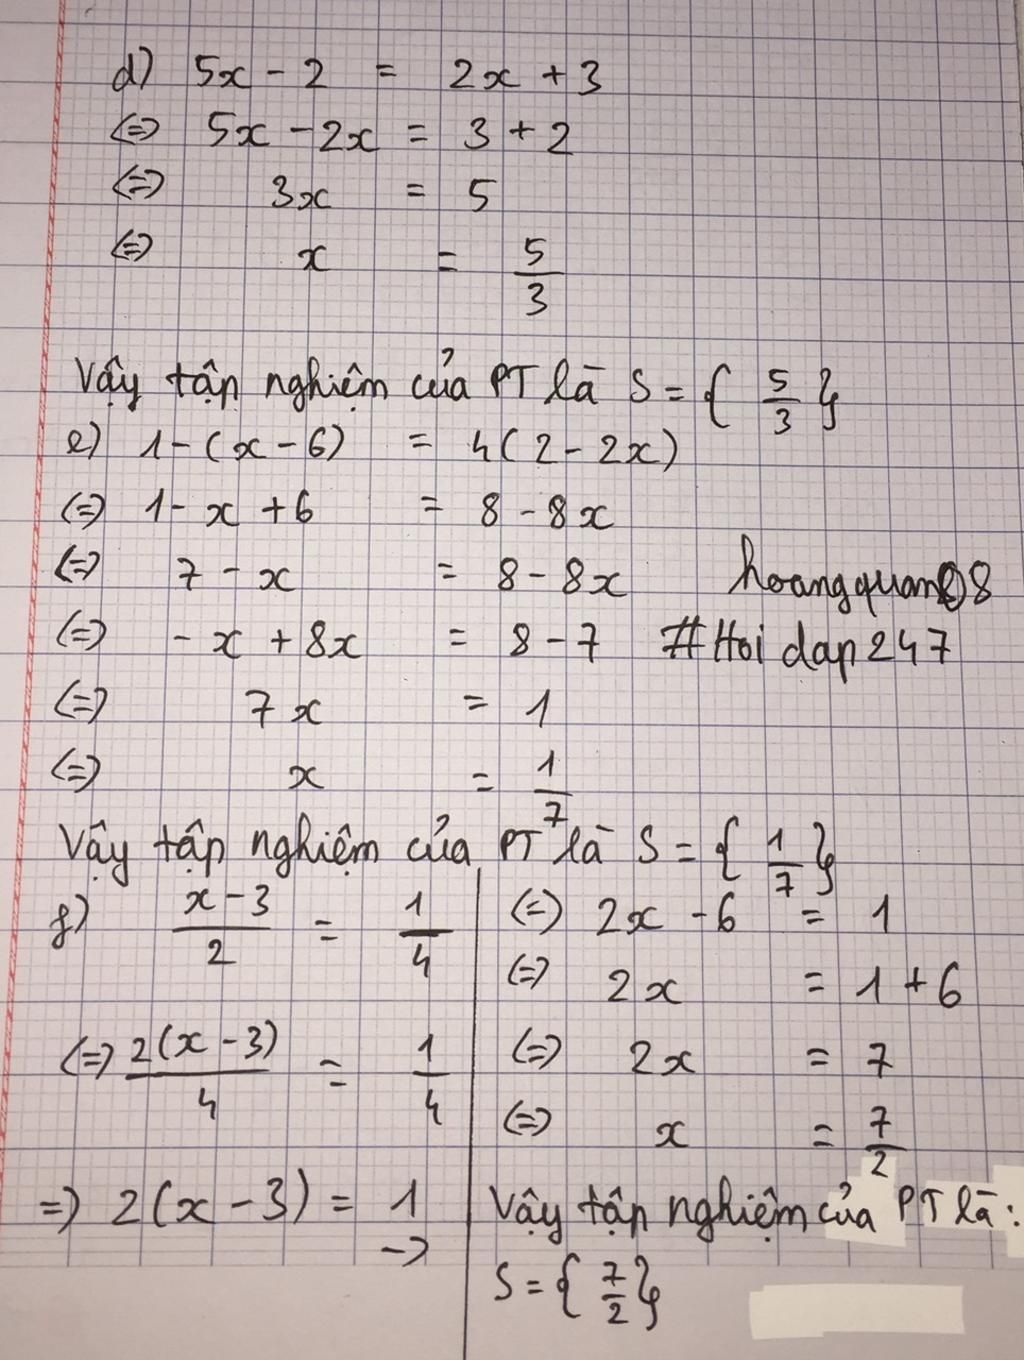 d) 5x - 2 = 2x + 3
<=> 5x - 2x = 3 + 2
<=> 3x = 5
<=> x = 5/3
Vậy tập nghiệm của PT là S = { 5/3 }
e) 1 - (x - 6) = 4(2 - 2x)
<=> 1 - x + 6 = 8 - 8x
<=> 7 - x = 8 - 8x
hoangquan08
<=> - x + 8x = 8 - 7
#Hoi dap 247
<=> 7x = 1
<=> x = 1/7
Vậy tập nghiệm của PT là S = { 1/7 }
f) (x - 3)/2 = 1/4
<=> 2(x - 3)/4 = 1/4
=> 2(x - 3) = 1
->
<=> 2x - 6 = 1
<=> 2x = 1 + 6
<=> 2x = 7
<=> x = 7/2
Vậy tập nghiệm của PT là:
S = { 7/2 }